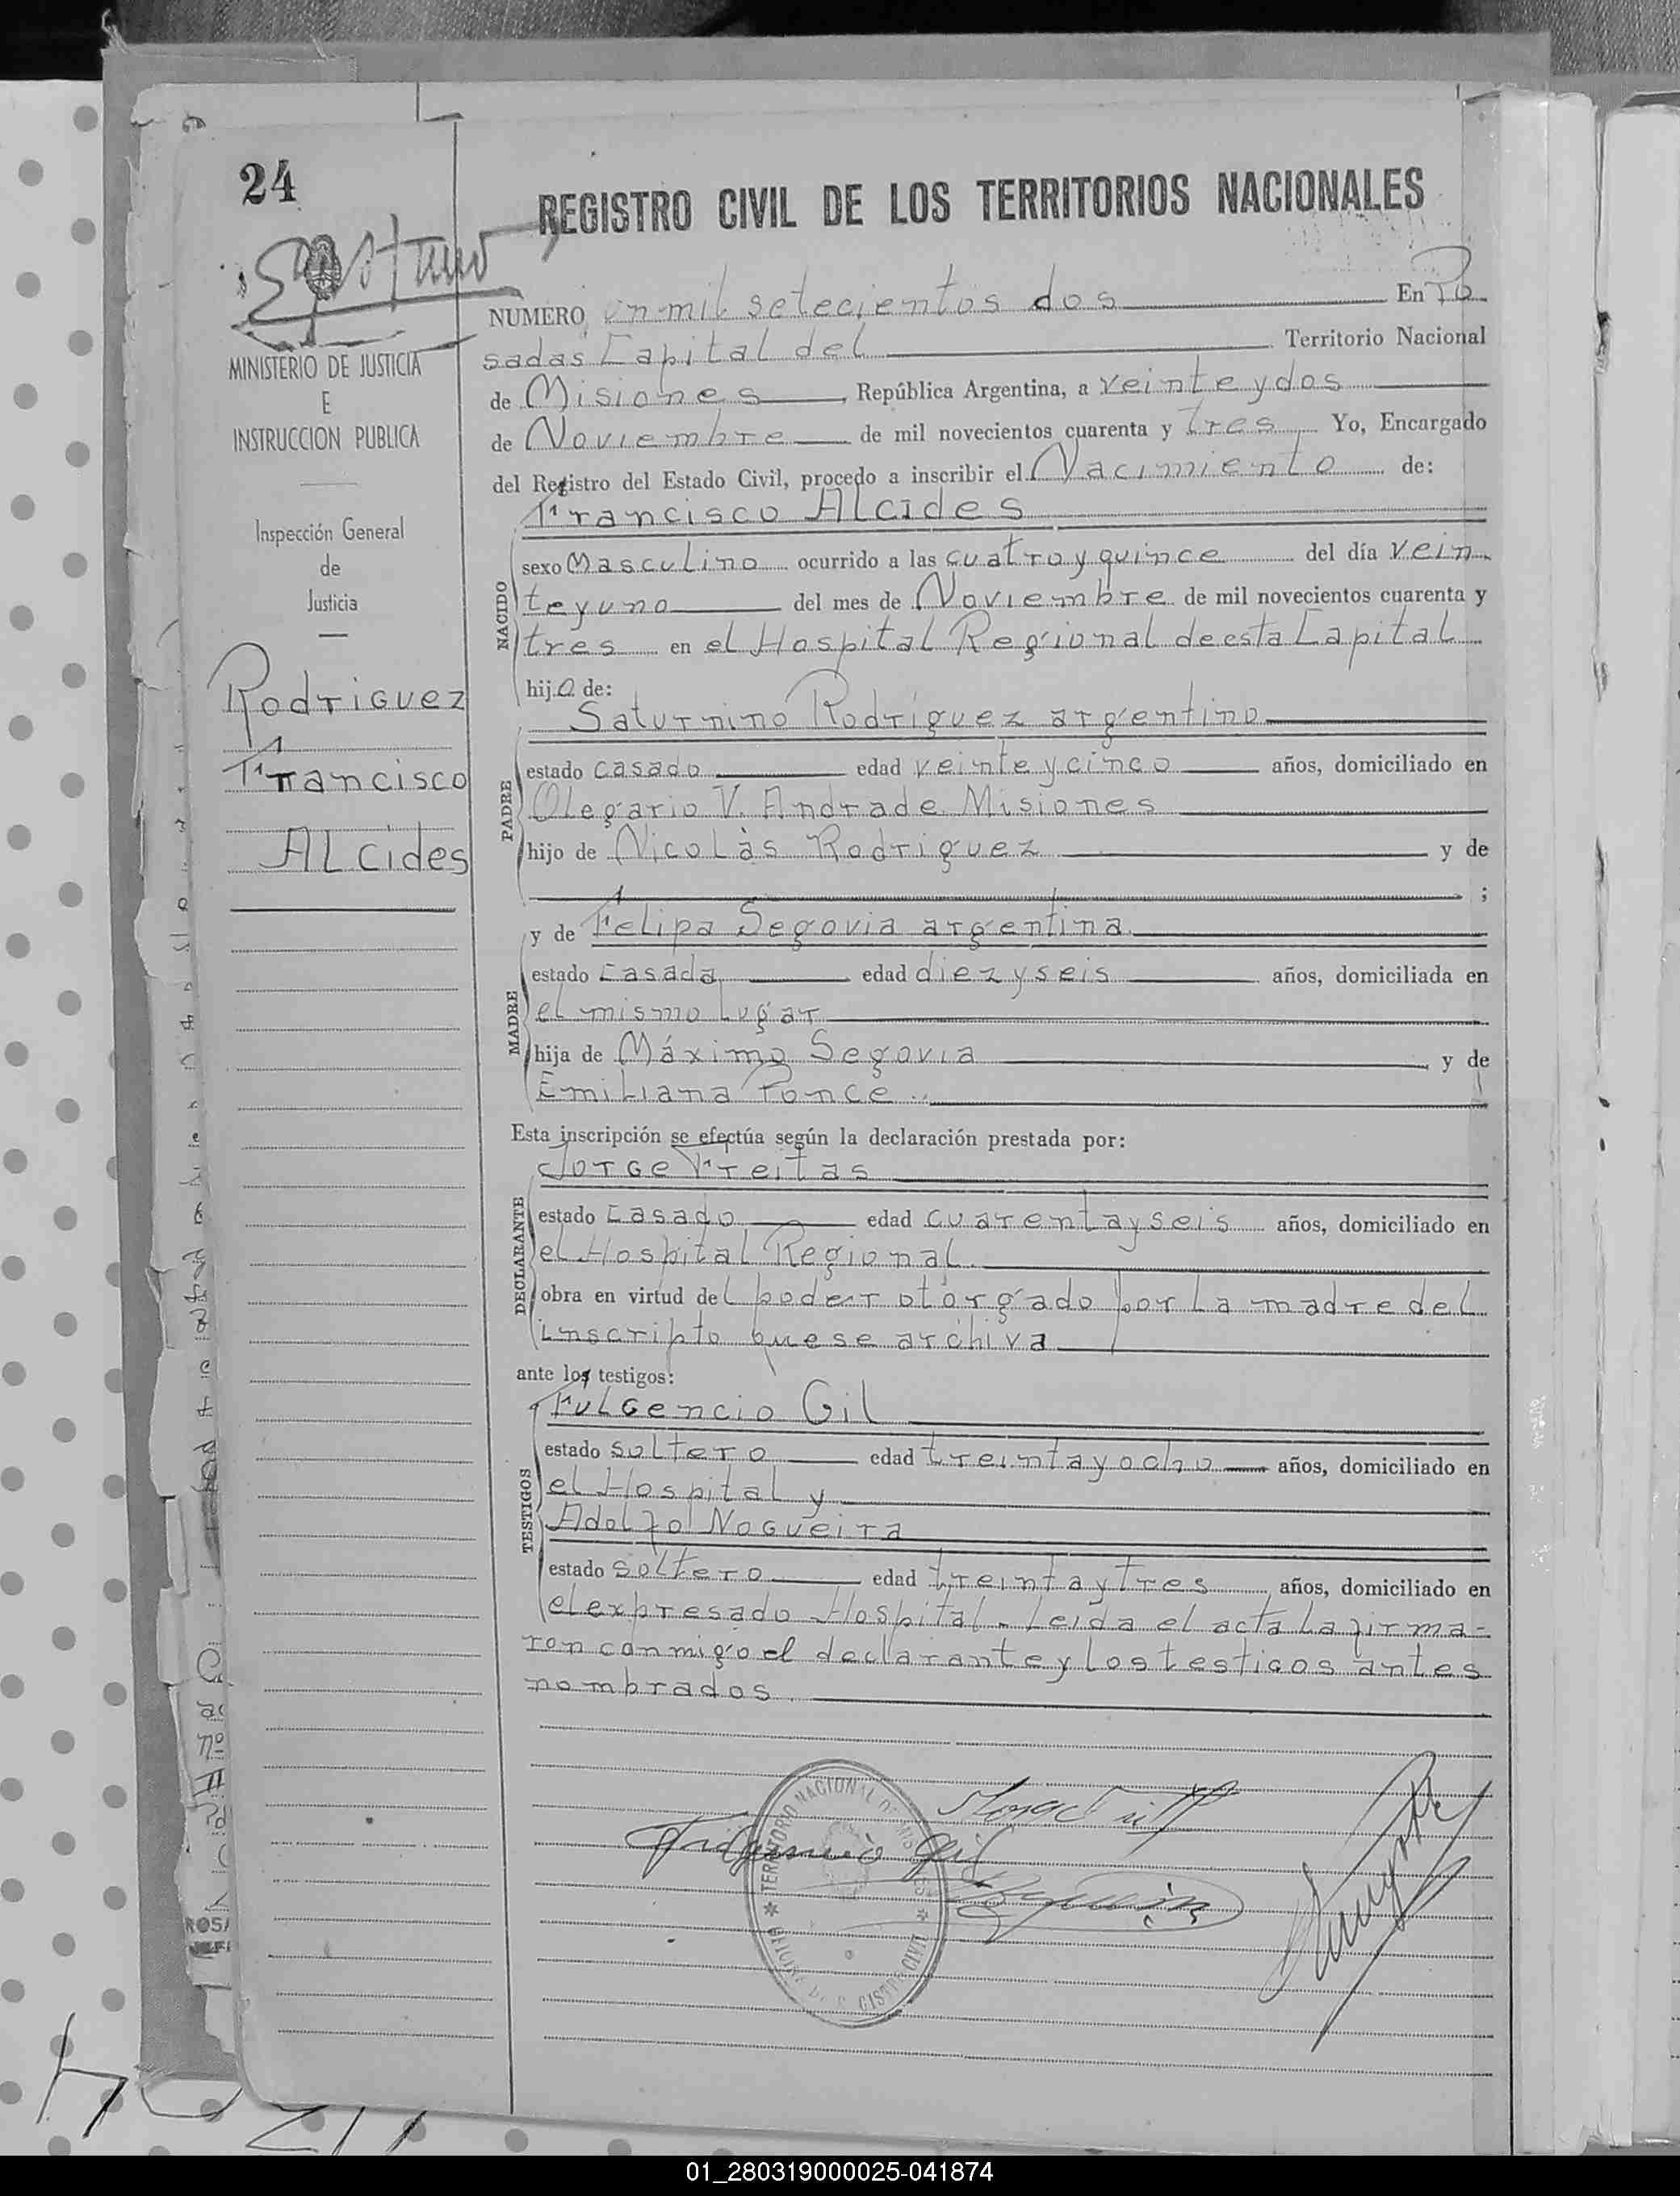 24
REGISTRO CIVIL DE LOS TERRITORIOS NACIONALES
NUMERO un mil setecientos dos En Po
sadas Capital del Territorio Nacional
de Misiones, República Argentina, a veinte y dos
de Noviembre de mil novecientos cuarenta y tres Yo, Encargado
del Registro del Estado Civil, procedo a inscribir el Nacimiento de:
MINISTERIO DE JUSTICIA
E
INSTRUCCION PUBLICA
Inspección General
de
Justicia
Rodriguez
Francisco
Alcides
Francisco Alcides
NACIDO
sexo Masculino ocurrido a las cuatro y quince del día vein
te y uno del mes de Noviembre de mil novecientos cuarenta y
tres en el Hospital Regional de esta Capital
hijo de:
Saturnino Rodríguez argentino
PADRE
estado casado edad veinte y cinco años, domiciliado en
Olegario V. Andrade Misiones
hijo de Nicolàs Rodriguez y de
;
y de Felipa Segovia argentina
MADRE
estado Casada edad diez y seis años, domiciliada en
el mismo lugar
hija de Máximo Segovia y de
Emiliana Ponce
Esta inscripción se efectúa según la declaración prestada por:
Jorge Freitas
DECLARANTE
estado Casado edad cuarenta y seis años, domiciliado en
el Hospital Regional
obra en virtud del poder otorgado por la madre del
inscripto que se archiva
ante los testigos:
Fulgencio Gil
TESTIGOS
estado soltero edad treinta y ocho años, domiciliado en
el Hospital y
Adolfo Nogueira
estado soltero edad treinta y tres años, domiciliado en
el expresado Hospital - Leida el acta la firma-
ron conmigo el declarante y los testigos antes
nombrados.
TERRITORIO NACIONAL DE MISIONES
OFICINA DE REGISTRO CIVIL
01_280319000025-041874